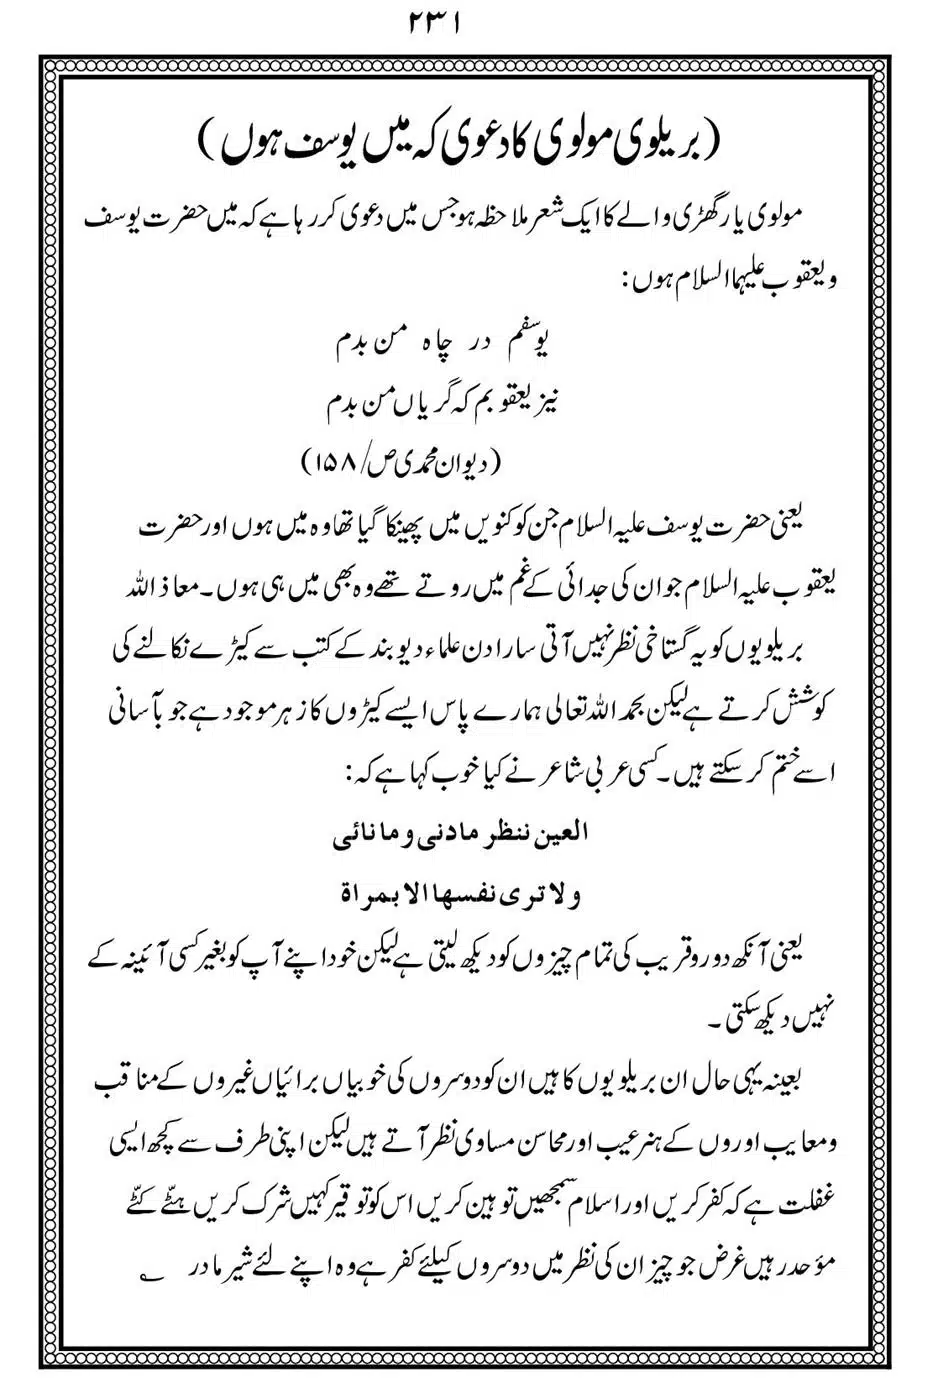 ۲۳۱
(بریلوی مولوی کا دعوی کہ میں یوسف ہوں)
مولوی یار گھڑی والے کا ایک شعر ملاحظہ ہو جس میں دعوی کر رہا ہے کہ میں حضرت یوسف
و یعقوب علیہما السلام ہوں:
یوسفم در چاہ من بدم
نیز یعقوبم کہ گریاں من بدم
(دیوان محمدی ص/۱۵۸)
یعنی حضرت یوسف علیہ السلام جن کو کنویں میں پھینکا گیا تھا وہ میں ہوں اور حضرت
یعقوب علیہ السلام جو ان کی جدائی کے غم میں روتے تھے وہ بھی میں ہی ہوں۔ معاذ اللہ
بریلویوں کو یہ گستاخی نظر نہیں آتی سارا دن علماء دیوبند کے کتب سے کیڑے نکالنے کی
کوشش کرتے ہے لیکن بحمد اللہ تعالی ہمارے پاس ایسے کیڑوں کا زہر موجود ہے جو بآسانی
اسے ختم کر سکتے ہیں۔ کسی عربی شاعر نے کیا خوب کہا ہے کہ:
العین ننظر مادنی ومانائی
ولا تری نفسها الا بمراة
یعنی آنکھ دور و قریب کی تمام چیزوں کو دیکھ لیتی ہے لیکن خود اپنے آپ کو بغیر کسی آئینہ کے
نہیں دیکھ سکتی۔
بعینہ یہی حال ان بریلویوں کا ہیں ان کو دوسروں کی خوبیاں برائیاں غیروں کے مناقب
ومعایب اوروں کے ہنر عیب اور محاسن مساوی نظر آتے ہیں لیکن اپنی طرف سے کچھ ایسی
غفلت ہے کہ کفر کریں اور اسلام سمجھیں توہین کریں اس کو توقیر کہیں شرک کریں ہٹّے کٹّے
مؤحد رہیں غرض جو چیز ان کی نظر میں دوسروں کیلئے کفر ہے وہ اپنے لئے شیر مادر ؂